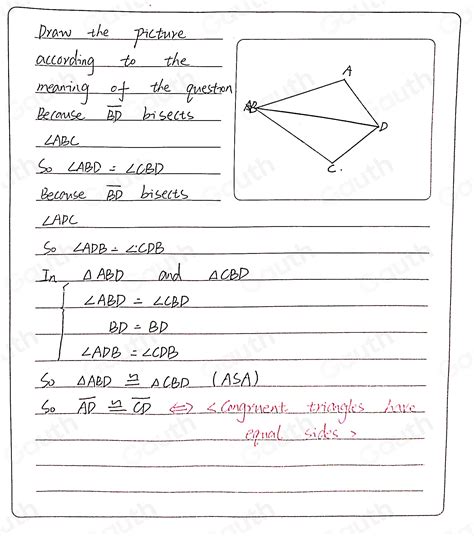 Draw the picture
according to the
meaning of the question
Because BD bisects
∠ABC
So ∠ABD = ∠CBD
Because BD bisects
∠ADC
So ∠ADB = ∠CDB
In △ABD and △CBD
∠ABD = ∠CBD
BD = BD
∠ADB = ∠CDB
So △ABD ≅ △CBD (ASA)
So AD ≅ CD ⇔ < Congruent triangles have
equal sides >
A
B
D
C.
Gauth